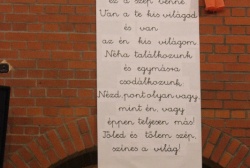 ez a szép benne
Van a te kis világod
és van
az én kis világom
Néha találkozunk
és egymásra
csodálkozunk,
Nézd pont olyan vagy
mint én, vagy
éppen teljesen más!
Tőled és tőlem szép,
színes a világ!